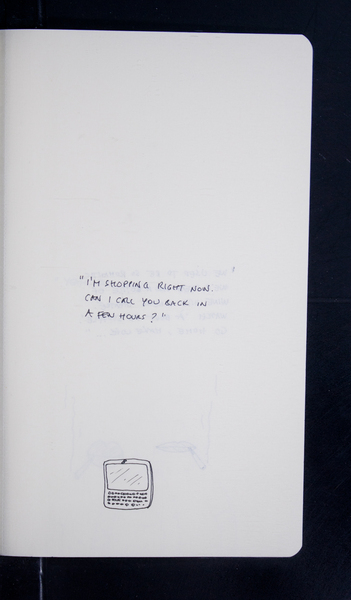 "I'M SHOPPING RIGHT NOW.
CAN I CALL YOU BACK IN
A FEW HOURS?"